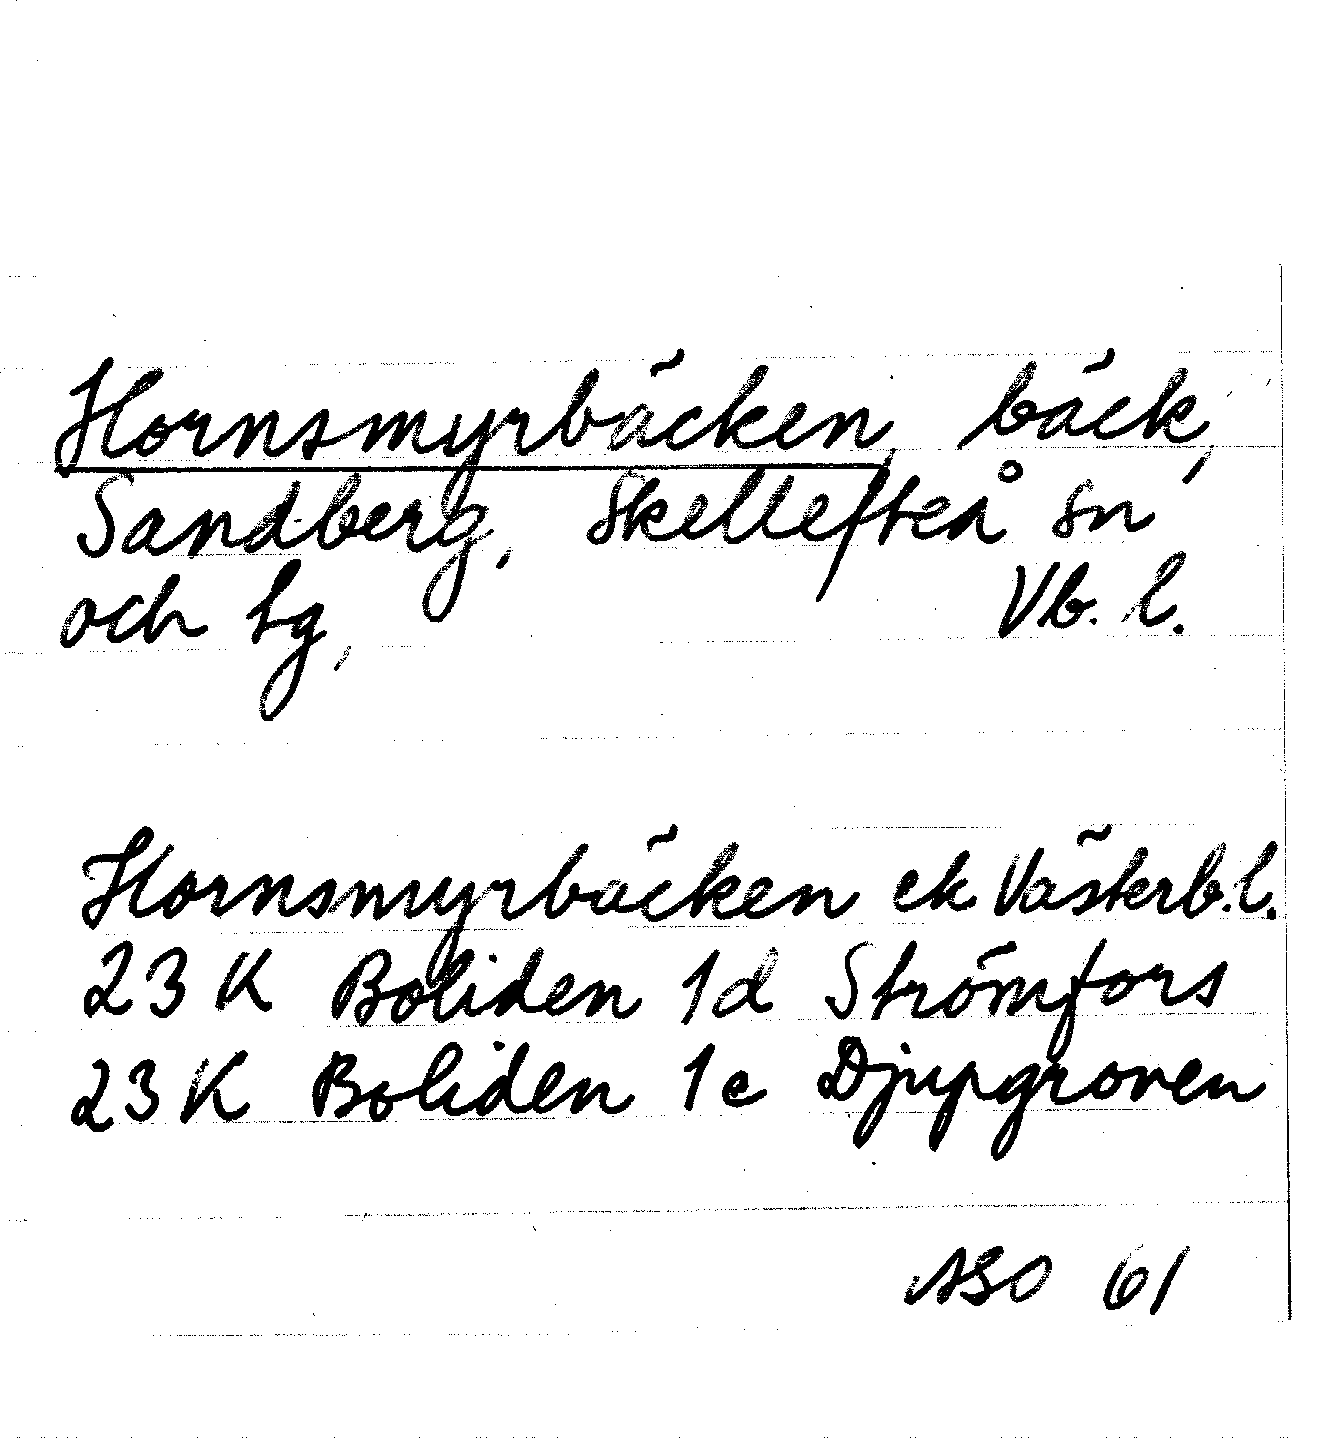 Hornsmyrbäcken, bäck,
Sandberg, Skellefteå sn
och tg, Vb. l.
Hornsmyrbäcken ek Västerb.l.
23 K Boliden 1d Strömfors
23 K Boliden 1c Djupgroven
ASO 61